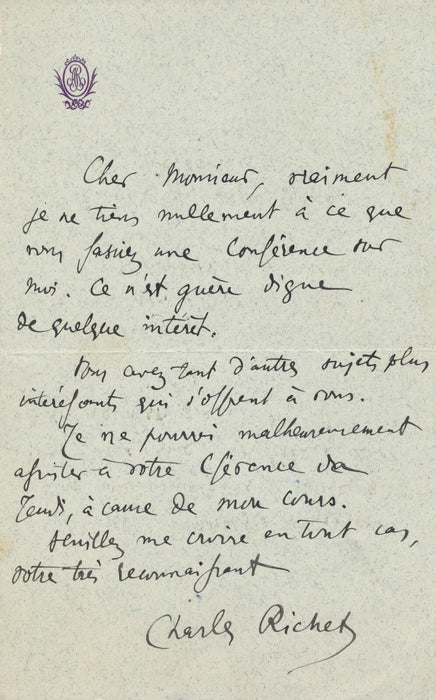 Cher Monsieur, vraiment
je ne tiens nullement à ce que
vous fassiez une Conférence sur
moi. Ce n'est guère digne
de quelque intérêt.
Vous avez tant d'autres sujets plus
intéressants qui s'offrent à vous.
Je ne pourrai malheureusement
assister à votre Cférence du
Jeudi, à cause de mon cours.
Veuillez me croire en tout cas,
votre très reconnaissant
Charles Richet